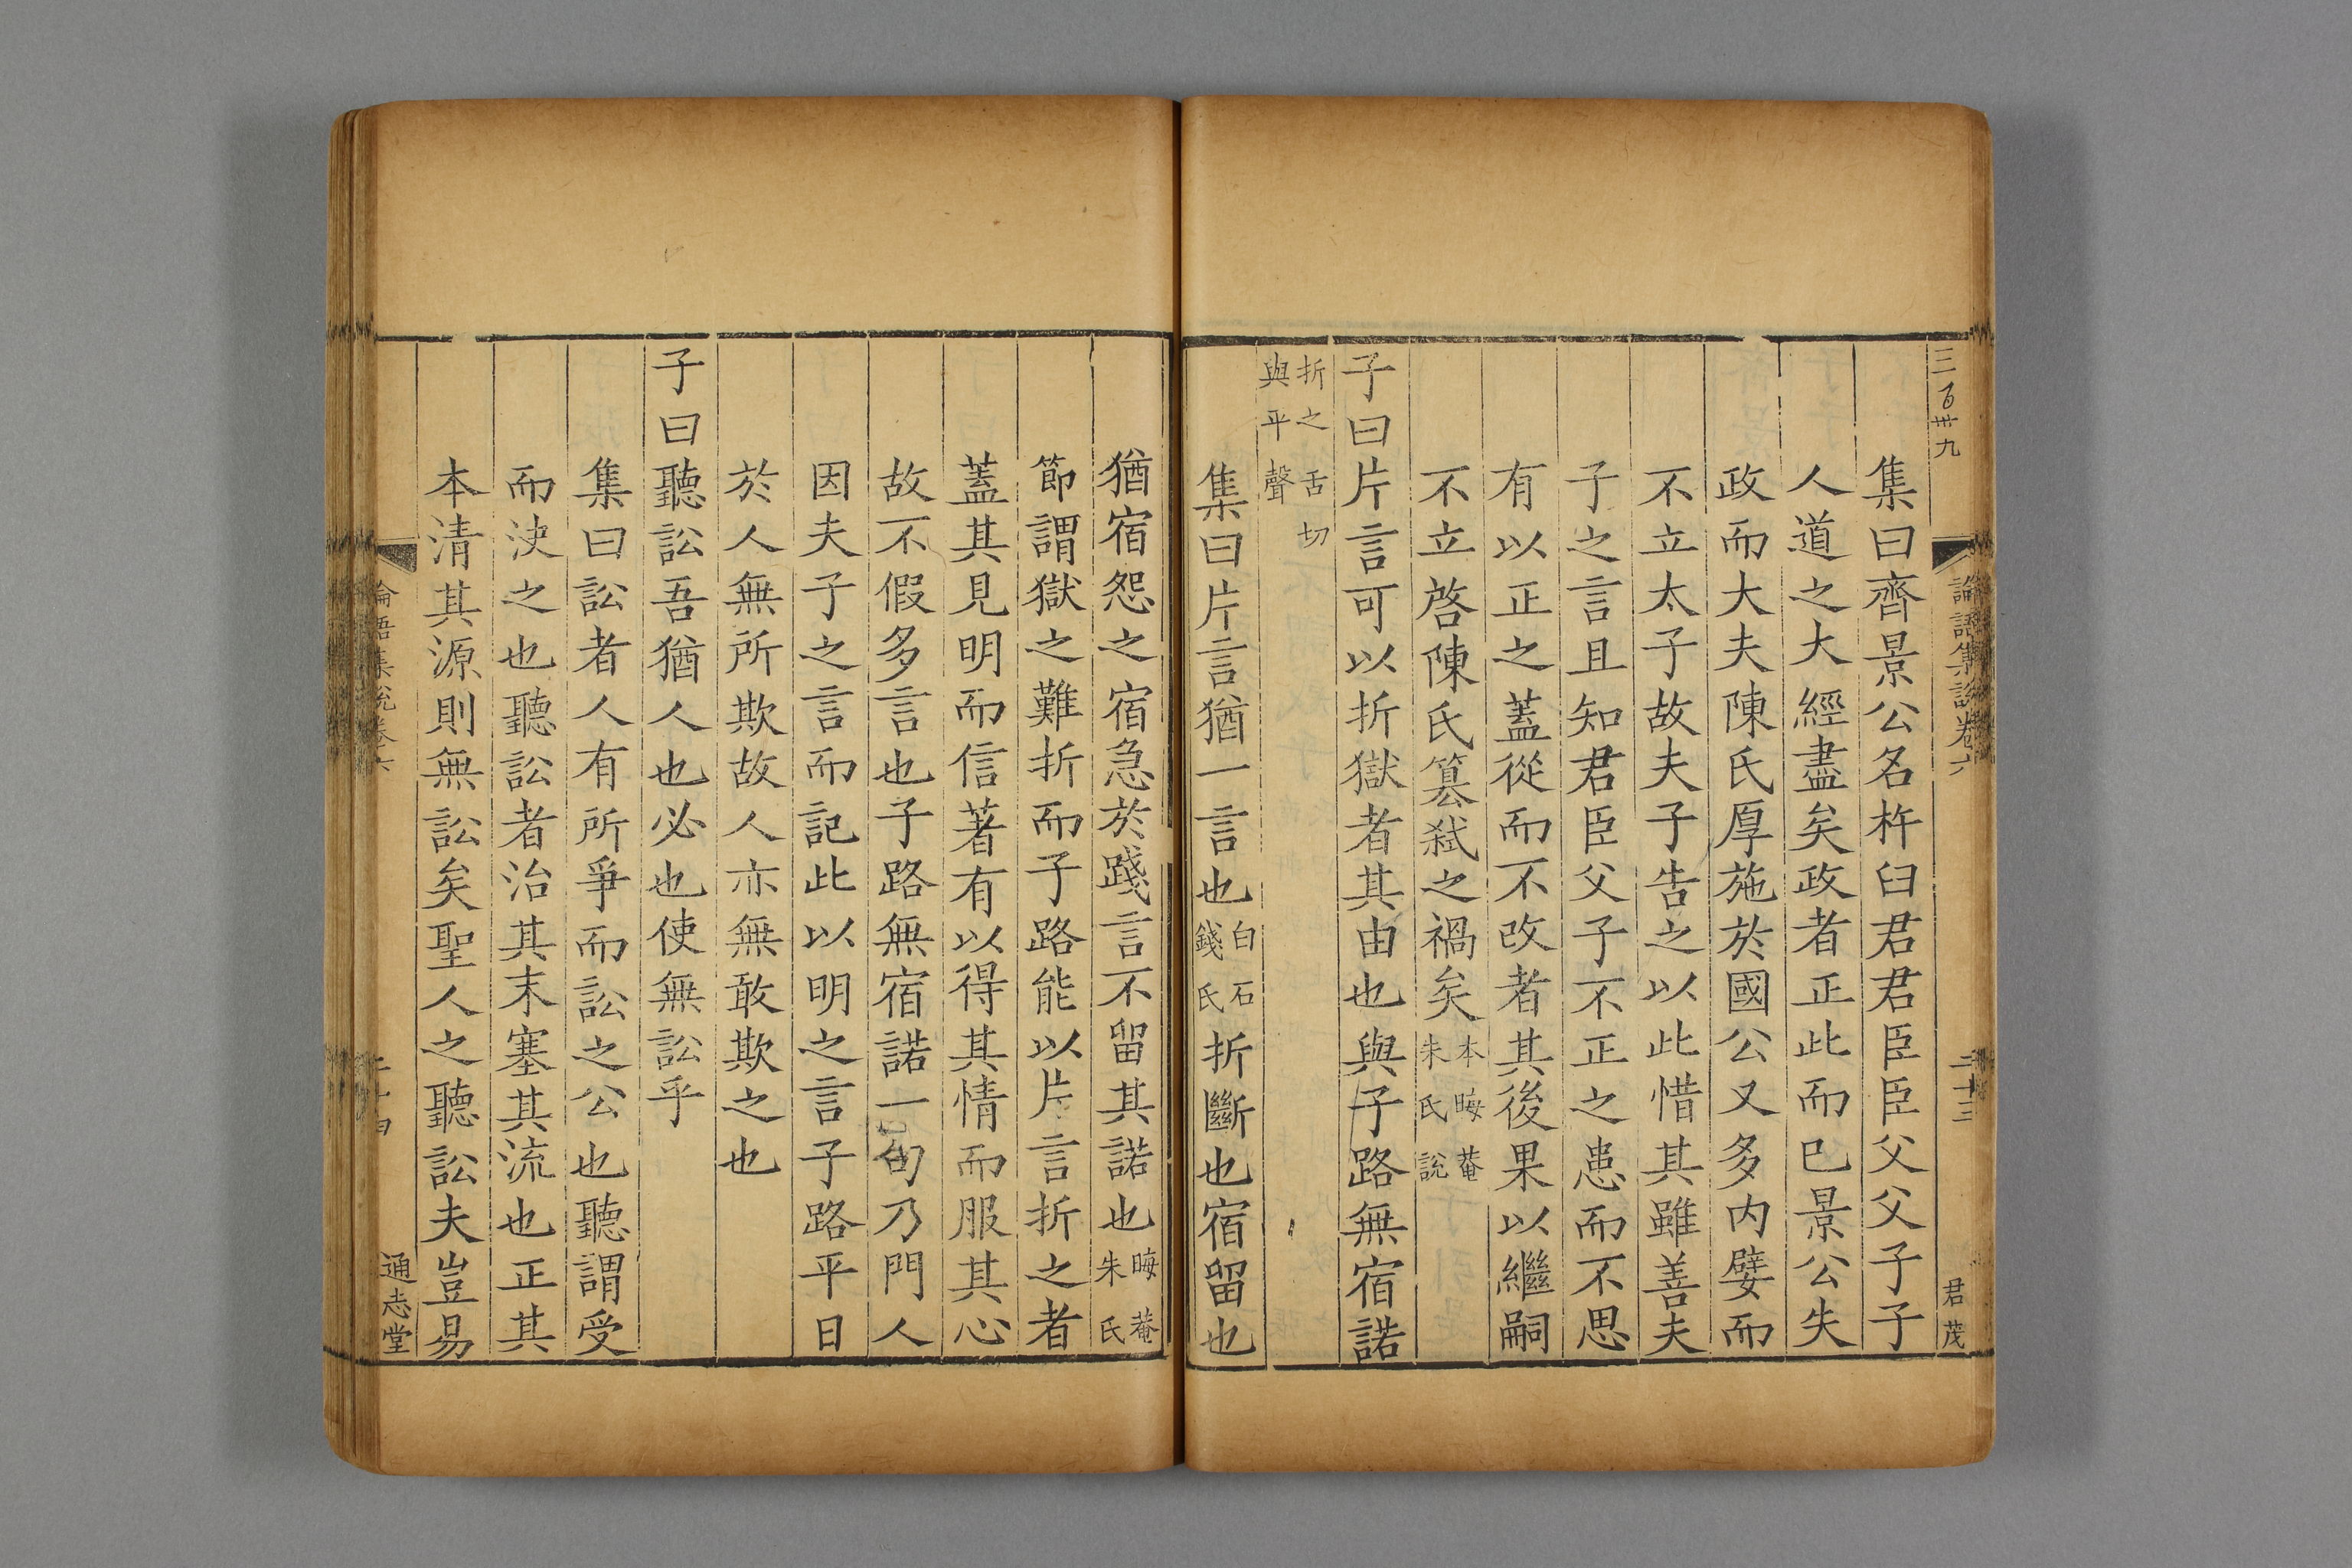 三百卅九
論語集說卷六
二十三
君茂
集曰齊景公名杵臼君君臣臣父父子子
人道之大經盡矣政者正此而已景公失
政而大夫陳氏厚施於國公又多內嬖而
不立太子故夫子告之以此惜其雖善夫
子之言且知君臣父子不正之患而不思
有以正之蓋從而不改者其後果以繼嗣
不立啓陳氏篡弒之禍矣本晦菴朱氏說
子曰片言可以折獄者其由也與子路無宿諾
折之舌切
與平聲
集曰片言猶一言也白石錢氏折斷也宿留也
猶宿怨之宿急於踐言不留其諾也晦菴朱氏
節謂獄之難折而子路能以片言折之者
蓋其見明而信著有以得其情而服其心
故不假多言也子路無宿諾一句乃門人
因夫子之言而記此以明之言子路平日
於人無所欺故人亦無敢欺之也
子曰聽訟吾猶人也必也使無訟乎
集曰訟者人有所爭而訟之公也聽謂受
而決之也聽訟者治其末塞其流也正其
本清其源則無訟矣聖人之聽訟夫豈易
論語集說卷六
二十四
通志堂